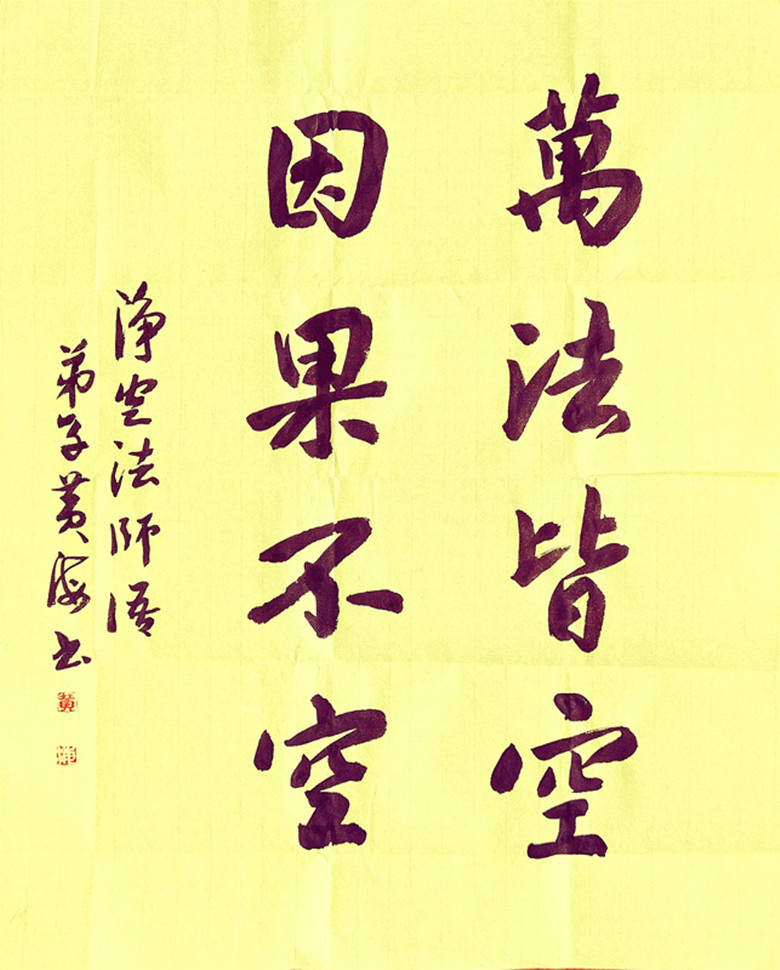 萬法皆空
因果不空
淨空法師語
弟子黃海书
黃